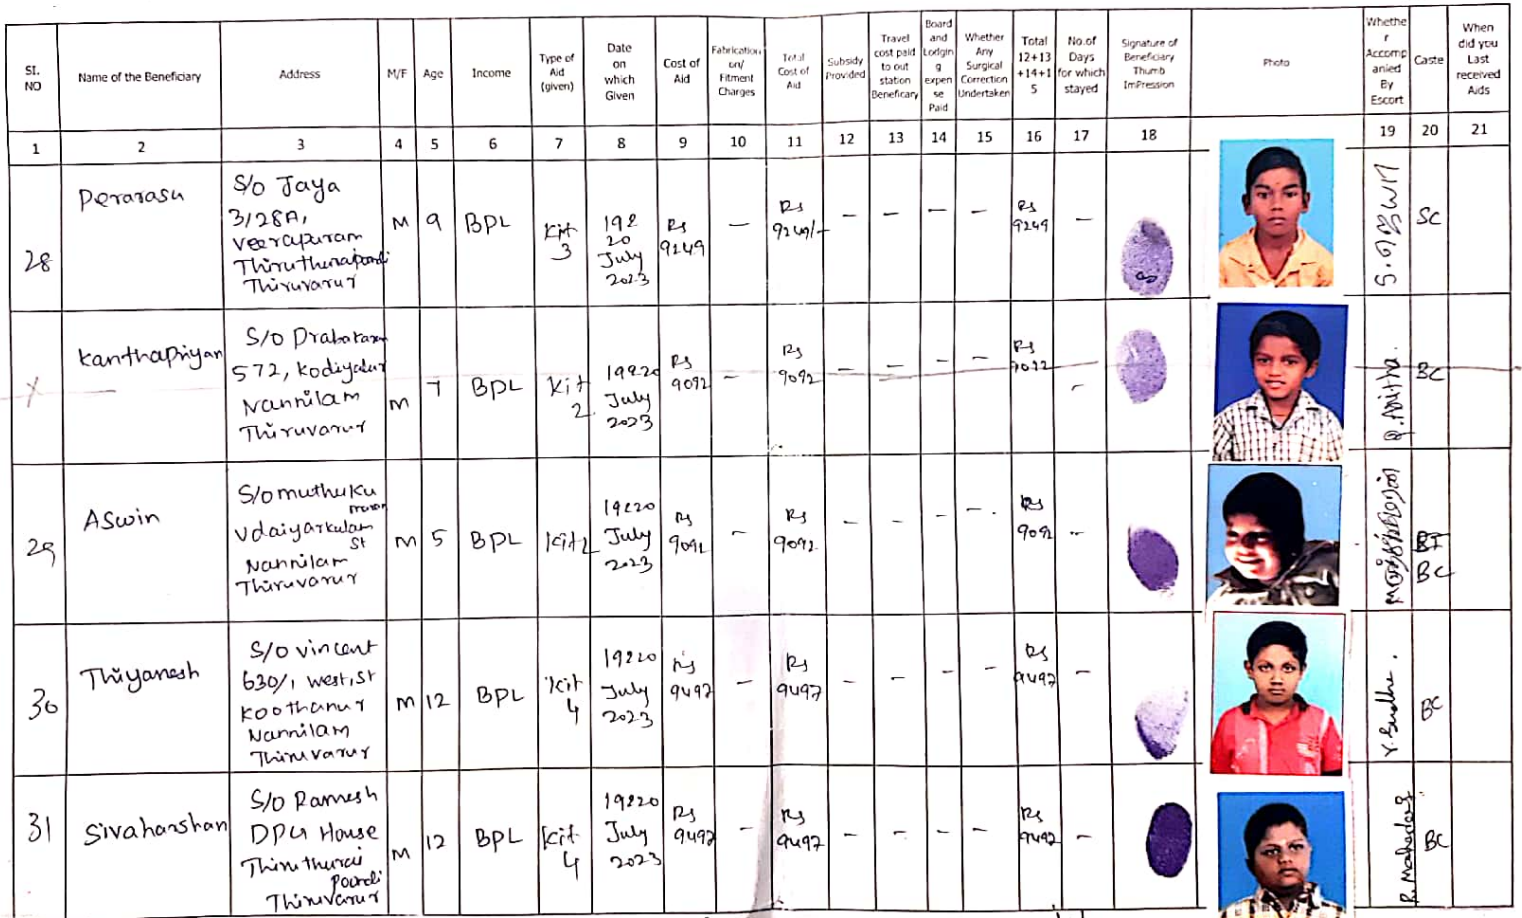 SI. NO
Name of the Beneficiary
Address
M/F
Age
Income
Type of Aid (given)
Date on which Given
Cost of Aid
Fabrication on/ Fitment Charges
Total Cost of Aid
Subsidy Provided
Travel cost paid to out station Beneficary
Board and Lodgin g expen se Paid
Whether Any Surgical Correction Undertaken
Total 12+13 +14+1 5
No.of Days for which stayed
Signature of Beneficiary Thumb ImPression
Photo
Whethe r Accomp anied By Escort
Caste
When did you Last received Aids
1 2 3 4 5 6 7 8 9 10 11 12 13 14 15 16 17 18 19 20 21
28
Perarasu
S/o Jaya
3/28A,
Veerapuram
Thiruthuraipoondi
Thiruvarur
M
9
BPL
Kit 3
19&20 July 2023
Rs 9249
—
Rs 9249/-
— — — —
Rs 9249
—
SC
X
Kanthapriyan
S/o Prabakaran
572, Kodiyalur
Nannilam
Thiruvarur
M
7
BPL
Kit 2
19&20 July 2023
Rs 9092
—
Rs 9092
— — — —
Rs 9092
-
Anitha.
BC
29
Aswin
S/o muthuku
maran
Udaiyarkulam
St
Nannilam
Thiruvarur
M
5
BPL
Kit 2
19&20 July 2023
Rs 9092
—
Rs 9092
— — — —
Rs 9092
—
BC
30
Thiyanesh
S/o vincent
630/1 west, st
Koothanur
Nannilam
Thiruvarur
M
12
BPL
Kit 4
19&20 July 2023
Rs 9497
—
Rs 9497
— — — —
Rs 9497
—
V. Sudha.
BC
31
Sivaharshan
S/o Ramesh
DPG House
Thiruthurai
poondi
Thiruvarur
M
12
BPL
Kit 4
19&20 July 2023
Rs 9497
—
Rs 9497
— — — —
Rs 9497
—
BC